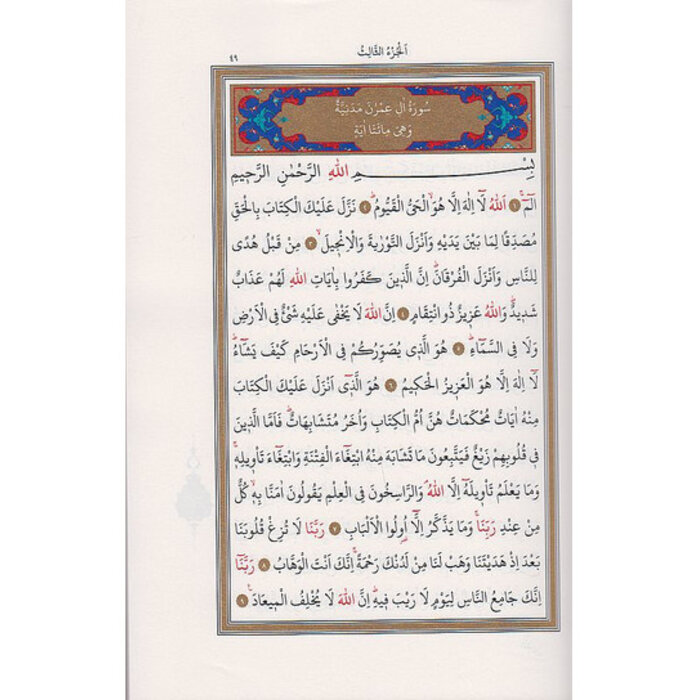 اَلْجُزْءُ الثَّالِثُ
٤٩
سُورَةُ اٰلِ عِمْرٰنَ مَدَنِيَّةٌ
وَهِىَ مِائَتَا اٰيَةٍ
بِسْــــــــــــمِ اللّٰهِ الرَّحْمٰنِ الرَّحٖيمِ
الٓمٓۚ ١ اَللّٰهُ لَٓا اِلٰهَ اِلَّا هُوَۙ الْحَىُّ الْقَيُّومُۜ ٢ نَزَّلَ عَلَيْكَ الْكِتَابَ بِالْحَقِّ
مُصَدِّقًا لِمَا بَيْنَ يَدَيْهِ وَاَنْزَلَ التَّوْرٰيةَ وَالْاِنْجٖيلَۙ ٣ مِنْ قَبْلُ هُدًى
لِلنَّاسِ وَاَنْزَلَ الْفُرْقَانَۜ اِنَّ الَّذٖينَ كَفَرُوا بِاٰيَاتِ اللّٰهِ لَهُمْ عَذَابٌ
شَدٖيدٌۜ وَاللّٰهُ عَزٖيزٌ ذُو انْتِقَامٍۜ ٤ اِنَّ اللّٰهَ لَا يَخْفٰى عَلَيْهِ شَىْءٌ فِى الْاَرْضِ
وَلَا فِى السَّمَٓاءِۜ ٥ هُوَ الَّذٖى يُصَوِّرُكُمْ فِى الْاَرْحَامِ كَيْفَ يَشَٓاءُۜ
لَٓا اِلٰهَ اِلَّا هُوَ الْعَزٖيزُ الْحَكٖيمُ ٦ هُوَ الَّذٖٓى اَنْزَلَ عَلَيْكَ الْكِتَابَ
مِنْهُ اٰيَاتٌ مُحْكَمَاتٌ هُنَّ اُمُّ الْكِتَابِ وَاُخَرُ مُتَشَابِهَاتٌۜ فَاَمَّا الَّذٖينَ
فٖى قُلُوبِهِمْ زَيْغٌ فَيَتَّبِعُونَ مَا تَشَابَهَ مِنْهُ ابْتِغَٓاءَ الْفِتْنَةِ وَابْتِغَٓاءَ تَاْوٖيلِهٖۚ
وَمَا يَعْلَمُ تَاْوٖيلَهُٓ اِلَّا اللّٰهُۢ وَالرَّاسِخُونَ فِى الْعِلْمِ يَقُولُونَ اٰمَنَّا بِهٖۙ كُلٌّ
مِنْ عِنْدِ رَبِّنَاۚ وَمَا يَذَّكَّرُ اِلَّٓا اُولُوا الْاَلْبَابِ ٧ رَبَّنَا لَا تُزِغْ قُلُوبَنَا
بَعْدَ اِذْ هَدَيْتَنَا وَهَبْ لَنَا مِنْ لَدُنْكَ رَحْمَةًۚ اِنَّكَ اَنْتَ الْوَهَّابُ ٨ رَبَّنَٓا
اِنَّكَ جَامِعُ النَّاسِ لِيَوْمٍ لَا رَيْبَ فٖيهِۜ اِنَّ اللّٰهَ لَا يُخْلِفُ الْمٖيعَادَۚ ٩